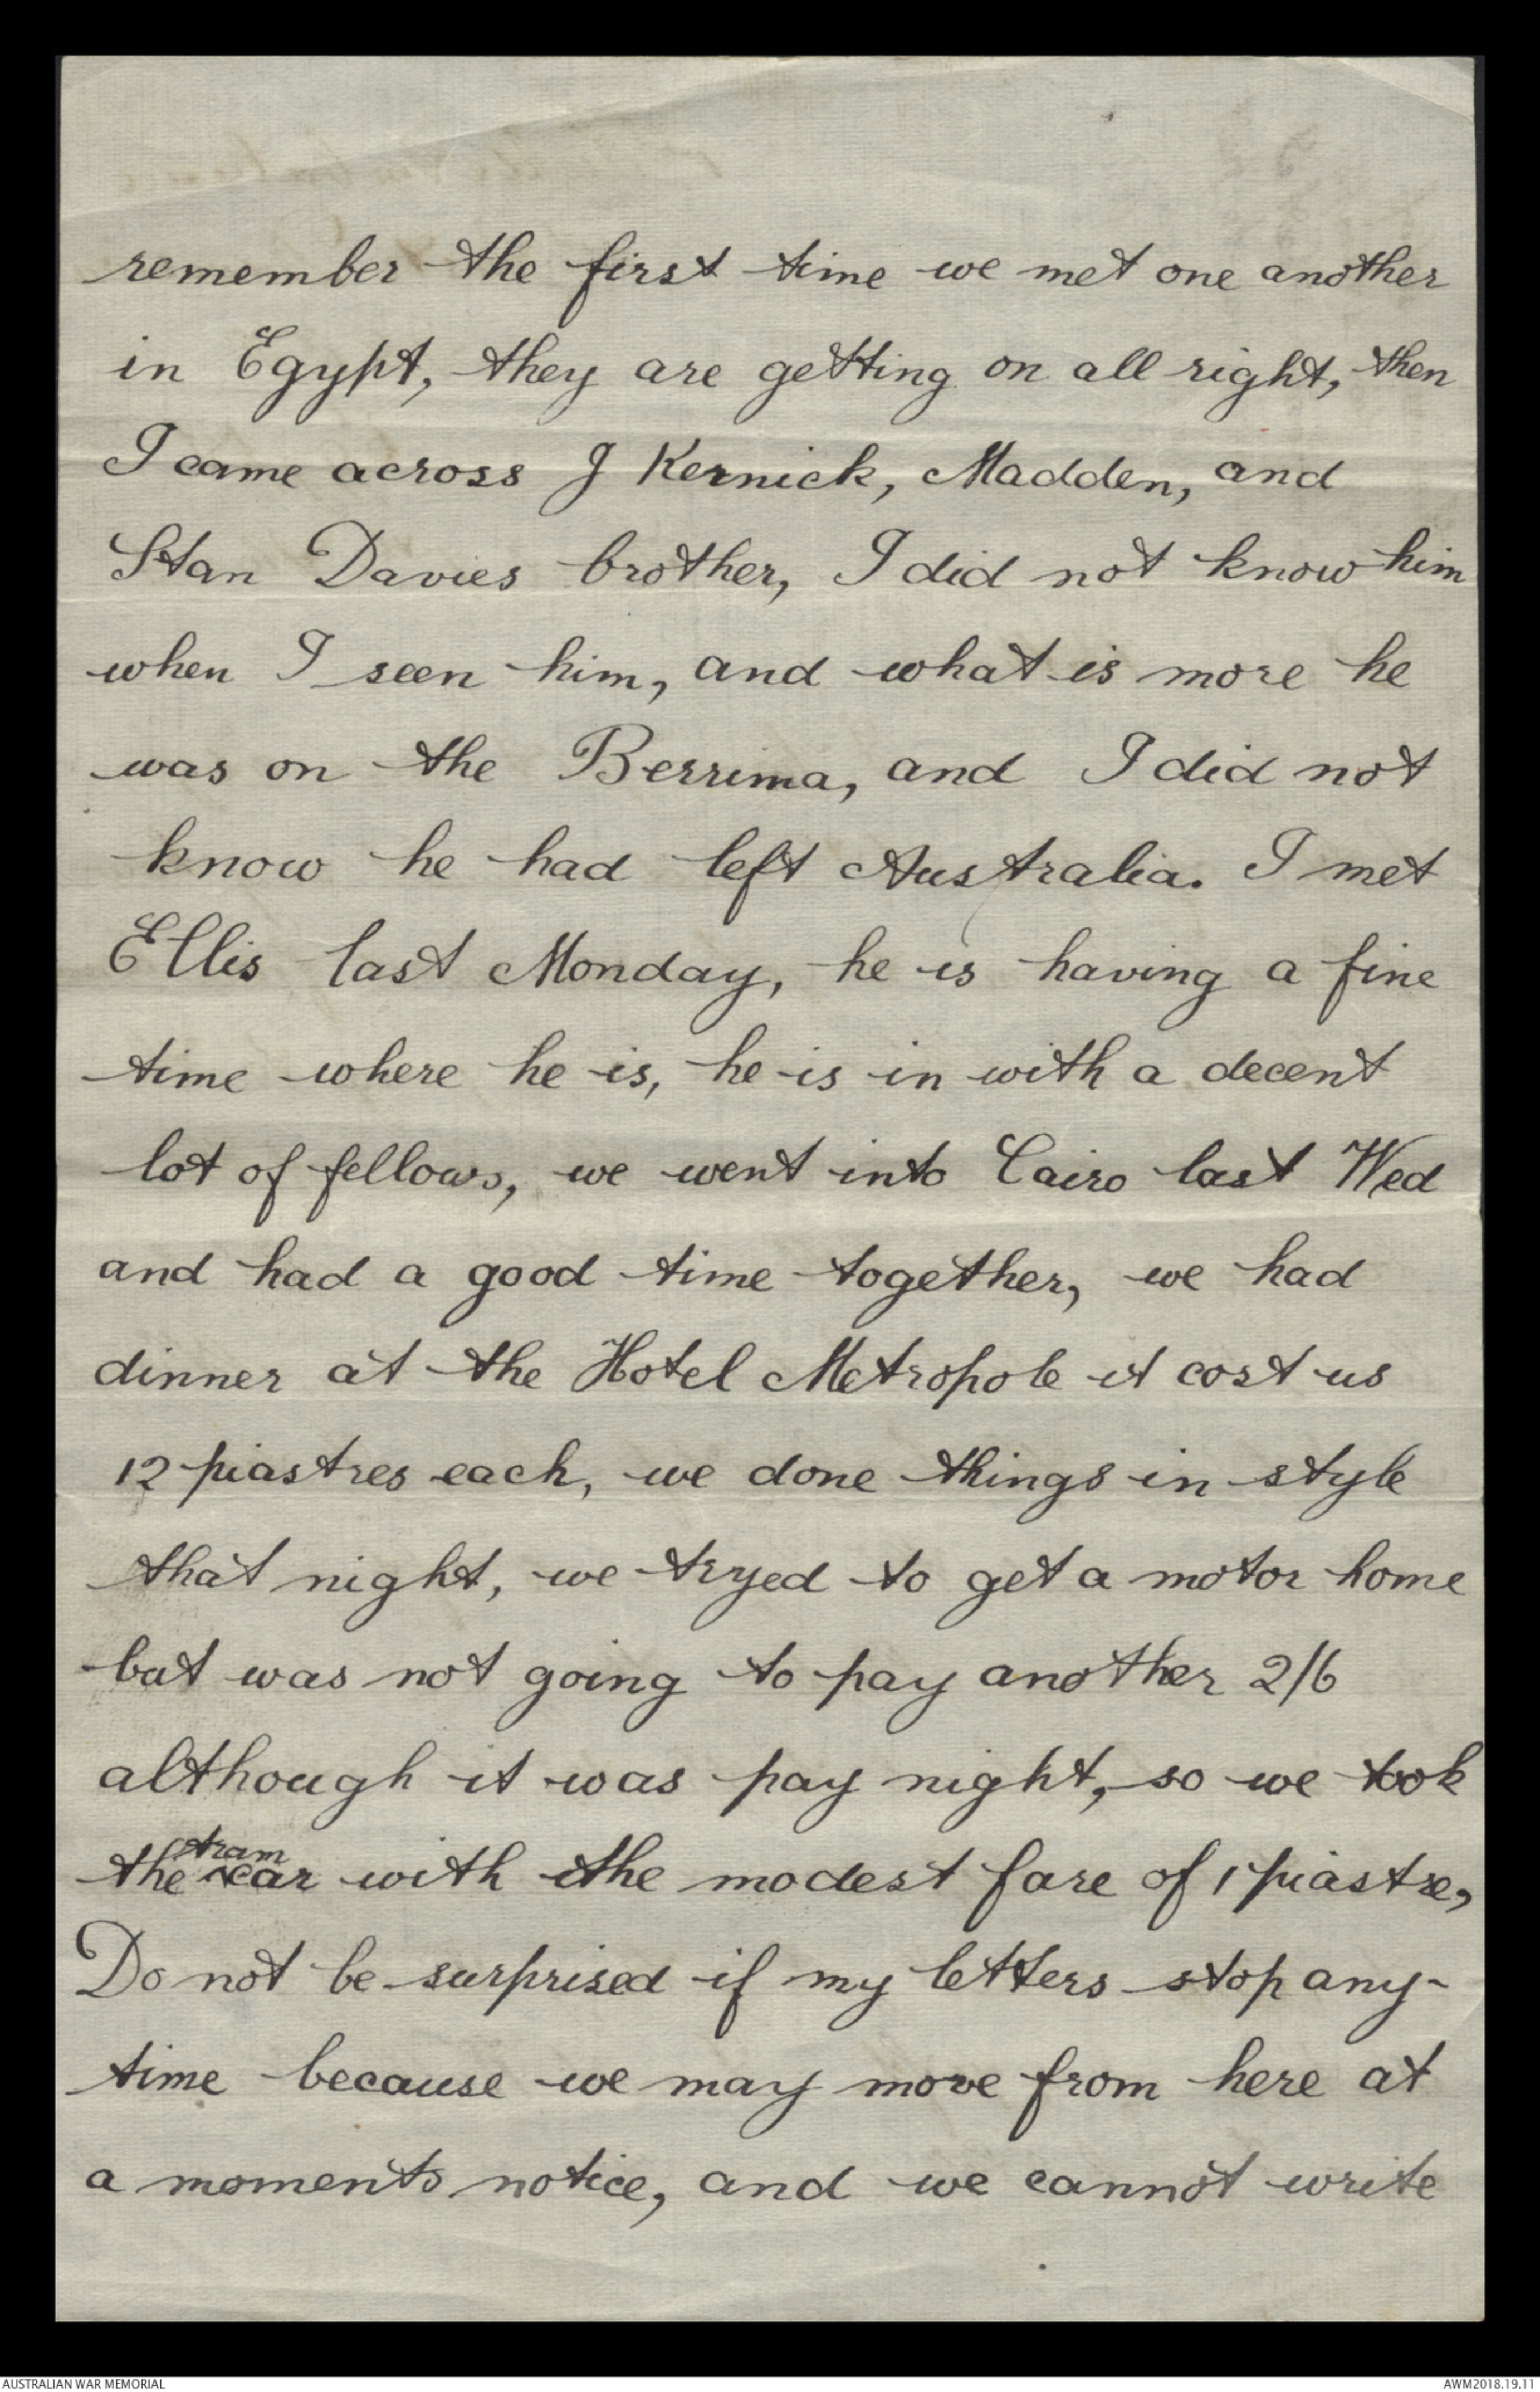 remember the first time we met one another
in Egypt, they are getting on all right, then
I came across J Kernick, Madden, and
Stan Davies brother, I did not know him
when I seen him, and what is more he
was on the Berrima, and I did not
know he had left Australia. I met
Ellis last Monday, he is having a fine
time where he is, he is in with a decent
lot of fellows, we went into Cairo last Wed
and had a good time together, we had
dinner at the Hotel Metropole it cost us
12 piastres each, we done things in style
that night, we tryed to get a motor home
but was not going to pay another 2/6
although it was pay night, so we took
the tram car with the modest fare of 1 piastre,
Do not be surprised if my letters stop any-
time because we may move from here at
a moments notice, and we cannot write
AUSTRALIAN WAR MEMORIAL
AWM2018.19.11